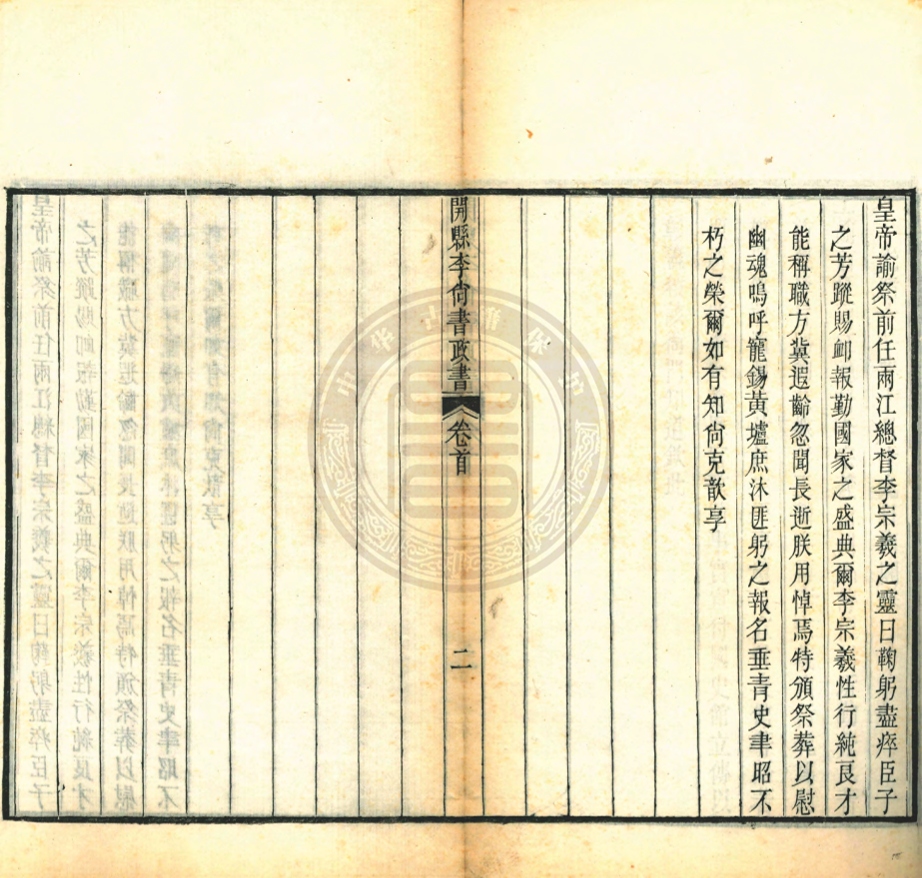 皇帝諭祭前任兩江總督李宗羲之靈曰鞠躬盡瘁臣子
之芳蹤賜卹報勤國家之盛典爾李宗羲性行純良才
能稱職方冀遐齡忽聞長逝朕用悼焉特頒祭葬以慰
幽魂嗚呼寵錫黃壚庶沐匪躬之報名垂青史聿昭不
朽之榮爾如有知尙克歆享
開縣李尙書政書
卷首
二